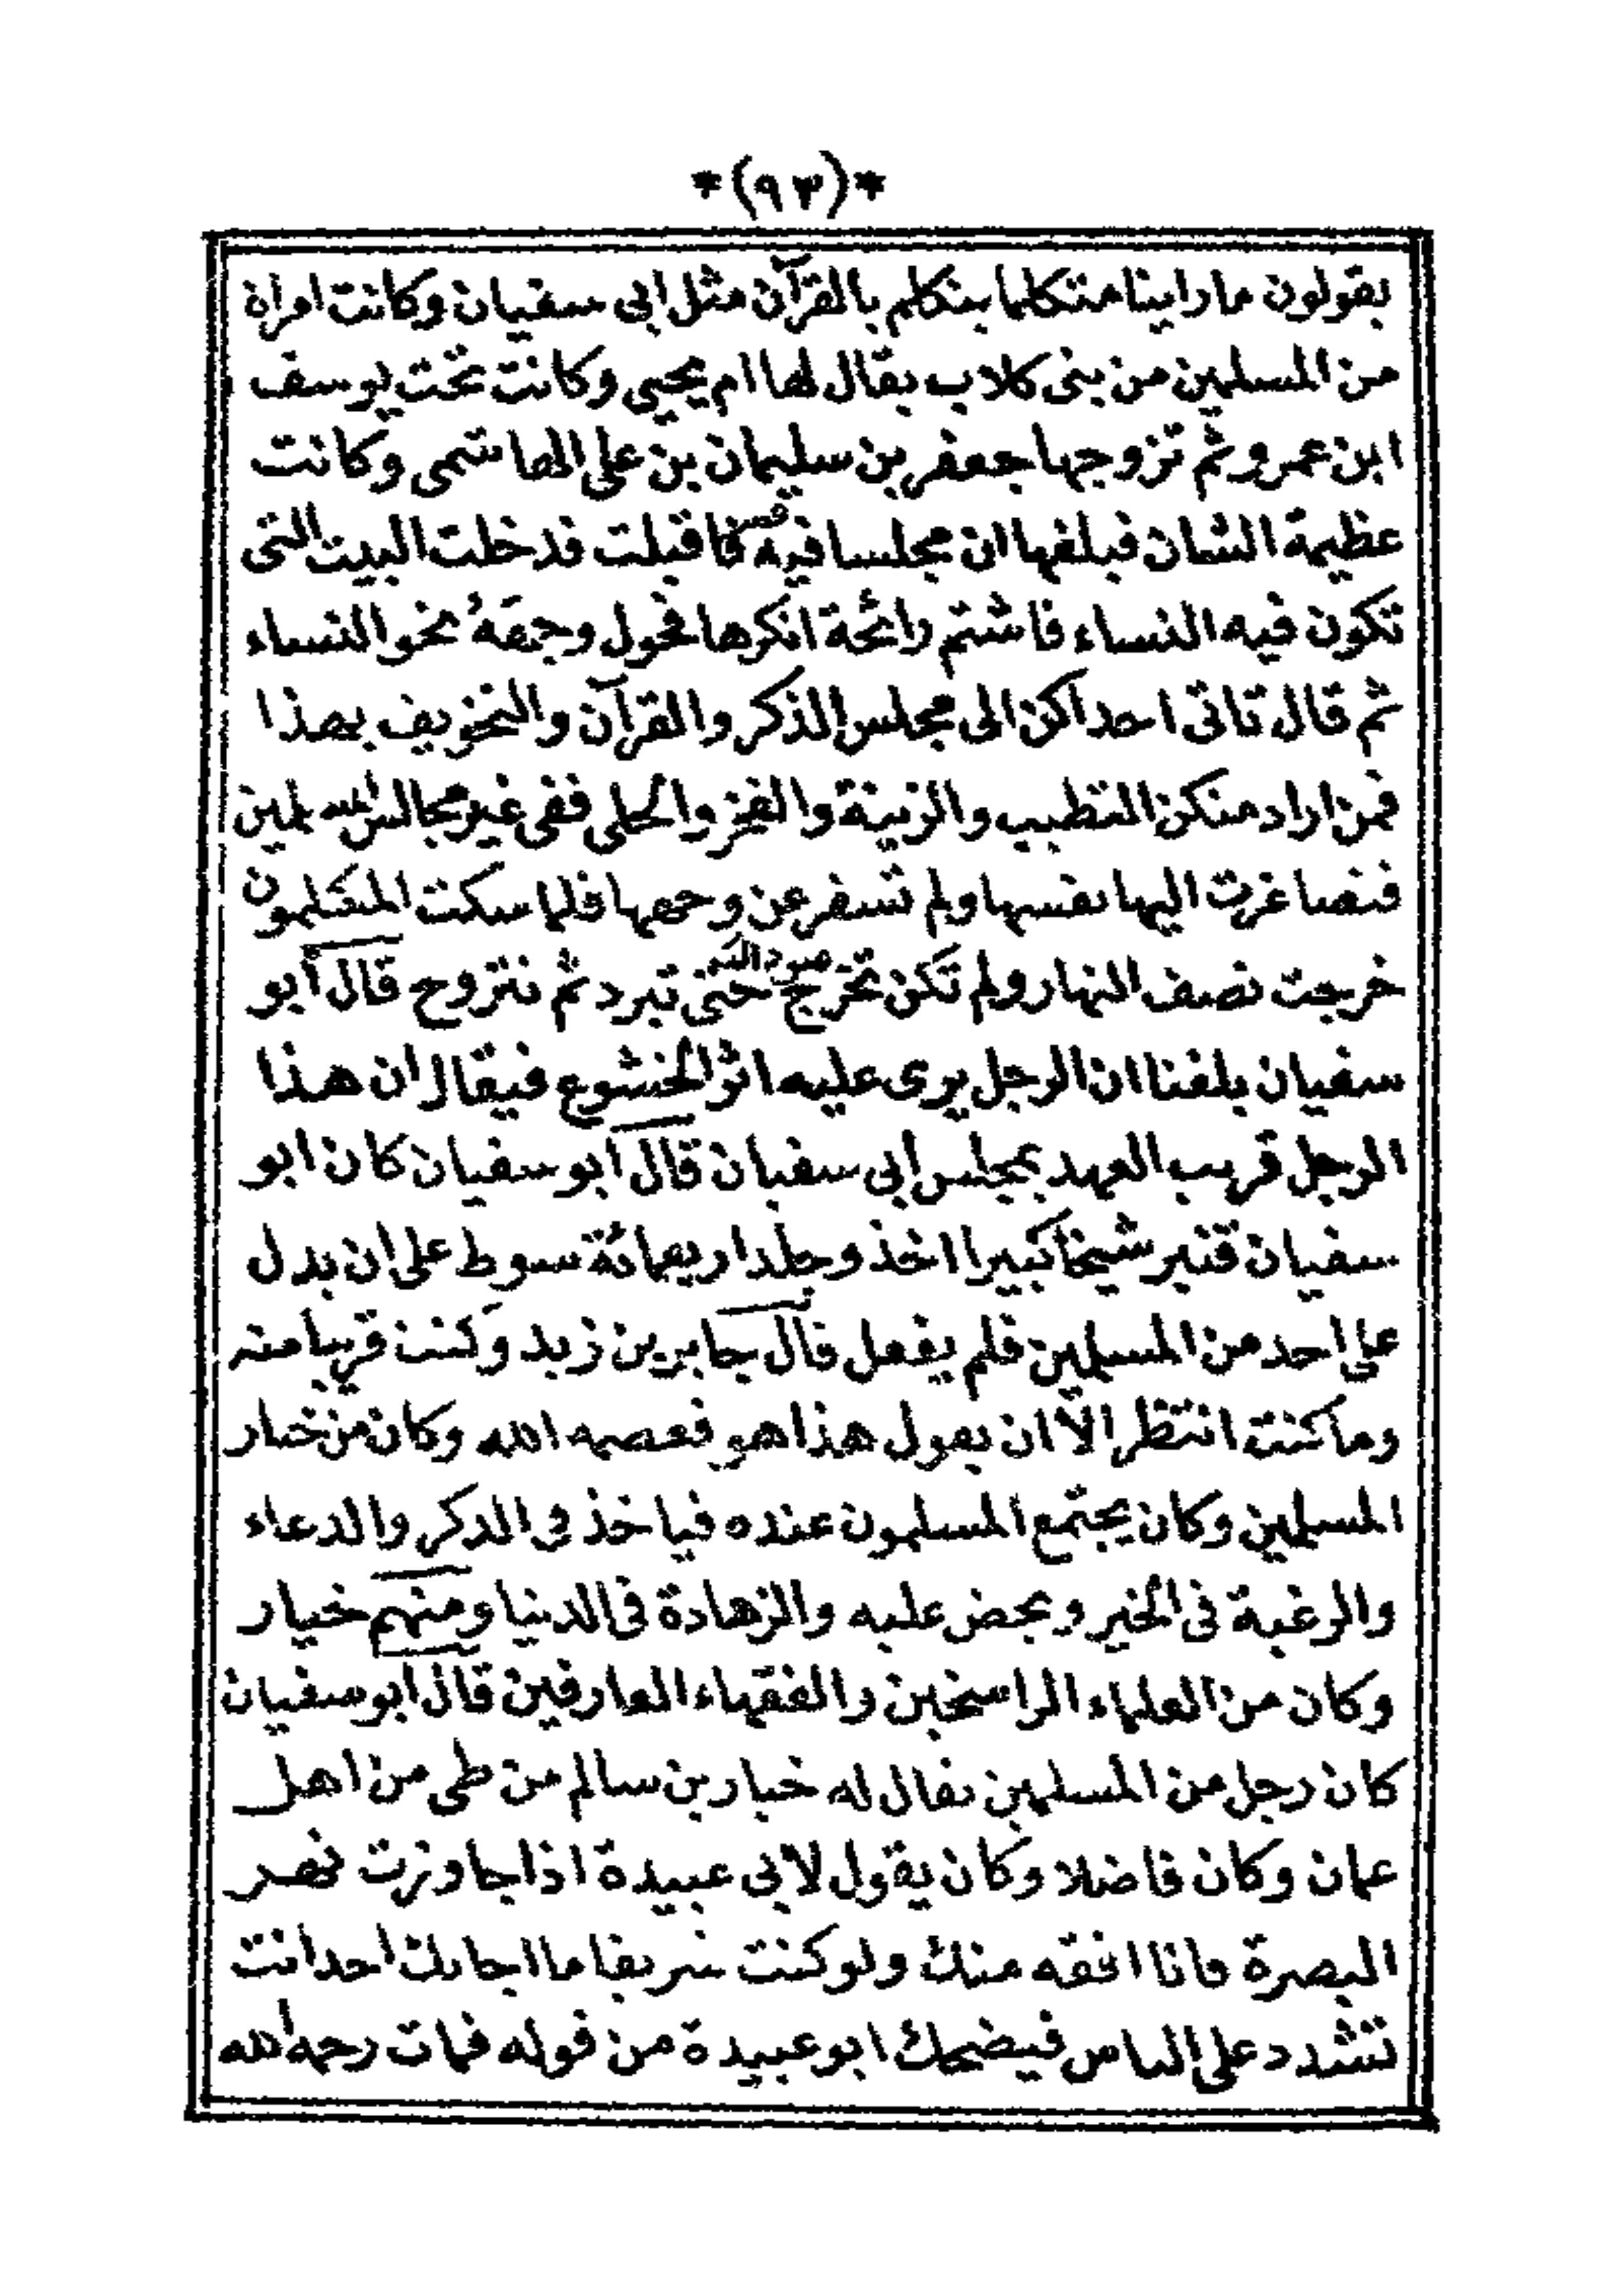 *(٩٣)*
يقولون ما راينا متكلما يتكلم بالقرآن مثل ابى سفيان وكانت امراة
من المسلمين من بنى كلاب يقال لها ام يحيى وكانت تحت يوسف
ابن عمرو ثم تزوجها جعفر بن سليمان بن على الهاشمى وكانت
عظيمة الشان فبلغها ان مجلسا فيه فاقبلت فدخلت البيت التى
تكون فيه النساء فاشتم رائحة انكرها فحول وجهَهُ نحو النساء
ثم قال تاتى احداكن الى مجلس الذكر والقرآن والتخويف بهذا
فمن اراد منكن التطيب والزينة والفخر والحلى ففى غير مجالس المسلمين
فتصاغرت اليها نفسها ولم تسفر عن وجهها فلما سكت المتكلمون
خرجت نصف النهار ولم تكن تخرج حتى تبرد ثم تتروح قال أبو
سفيان بلغنا ان الرجل يرى عليه اثر الخشوع فيقال ان هذا
الرجل قريب العهد بمجلس ابى سفيان قال ابو سفيان كان ابو
سفيان قنبر شيخا كبيرا اخذ وجلد اربعمائة سوط على ان يدل
على احد من المسلمين فلم يفعل قال جابر بن زيد وكنت قريبا منه
وما كنت انتظر الا ان يقول هذا هو فعصمه الله وكان من خيار
المسلمين وكان يجتمع المسلمون عنده فياخذ فى الذكر والدعاء
والرغبة فى الخير ويحض عليه والزهادة فى الدنيا ومنهم خيار
وكان من العلماء الراسخين والفقهاء العارفين قال ابو سفيان
كان رجل من المسلمين يقال له خيار بن سالم من طى من اهل
عمان وكان فاضلا وكان يقول لابى عبيدة اذا جاوزت نهر
البصرة فانا افقه منك ولو كنت شريفا ما اجابك احد انت
تشدد على الناس فيضحك ابو عبيدة من قوله فمات رحمه الله